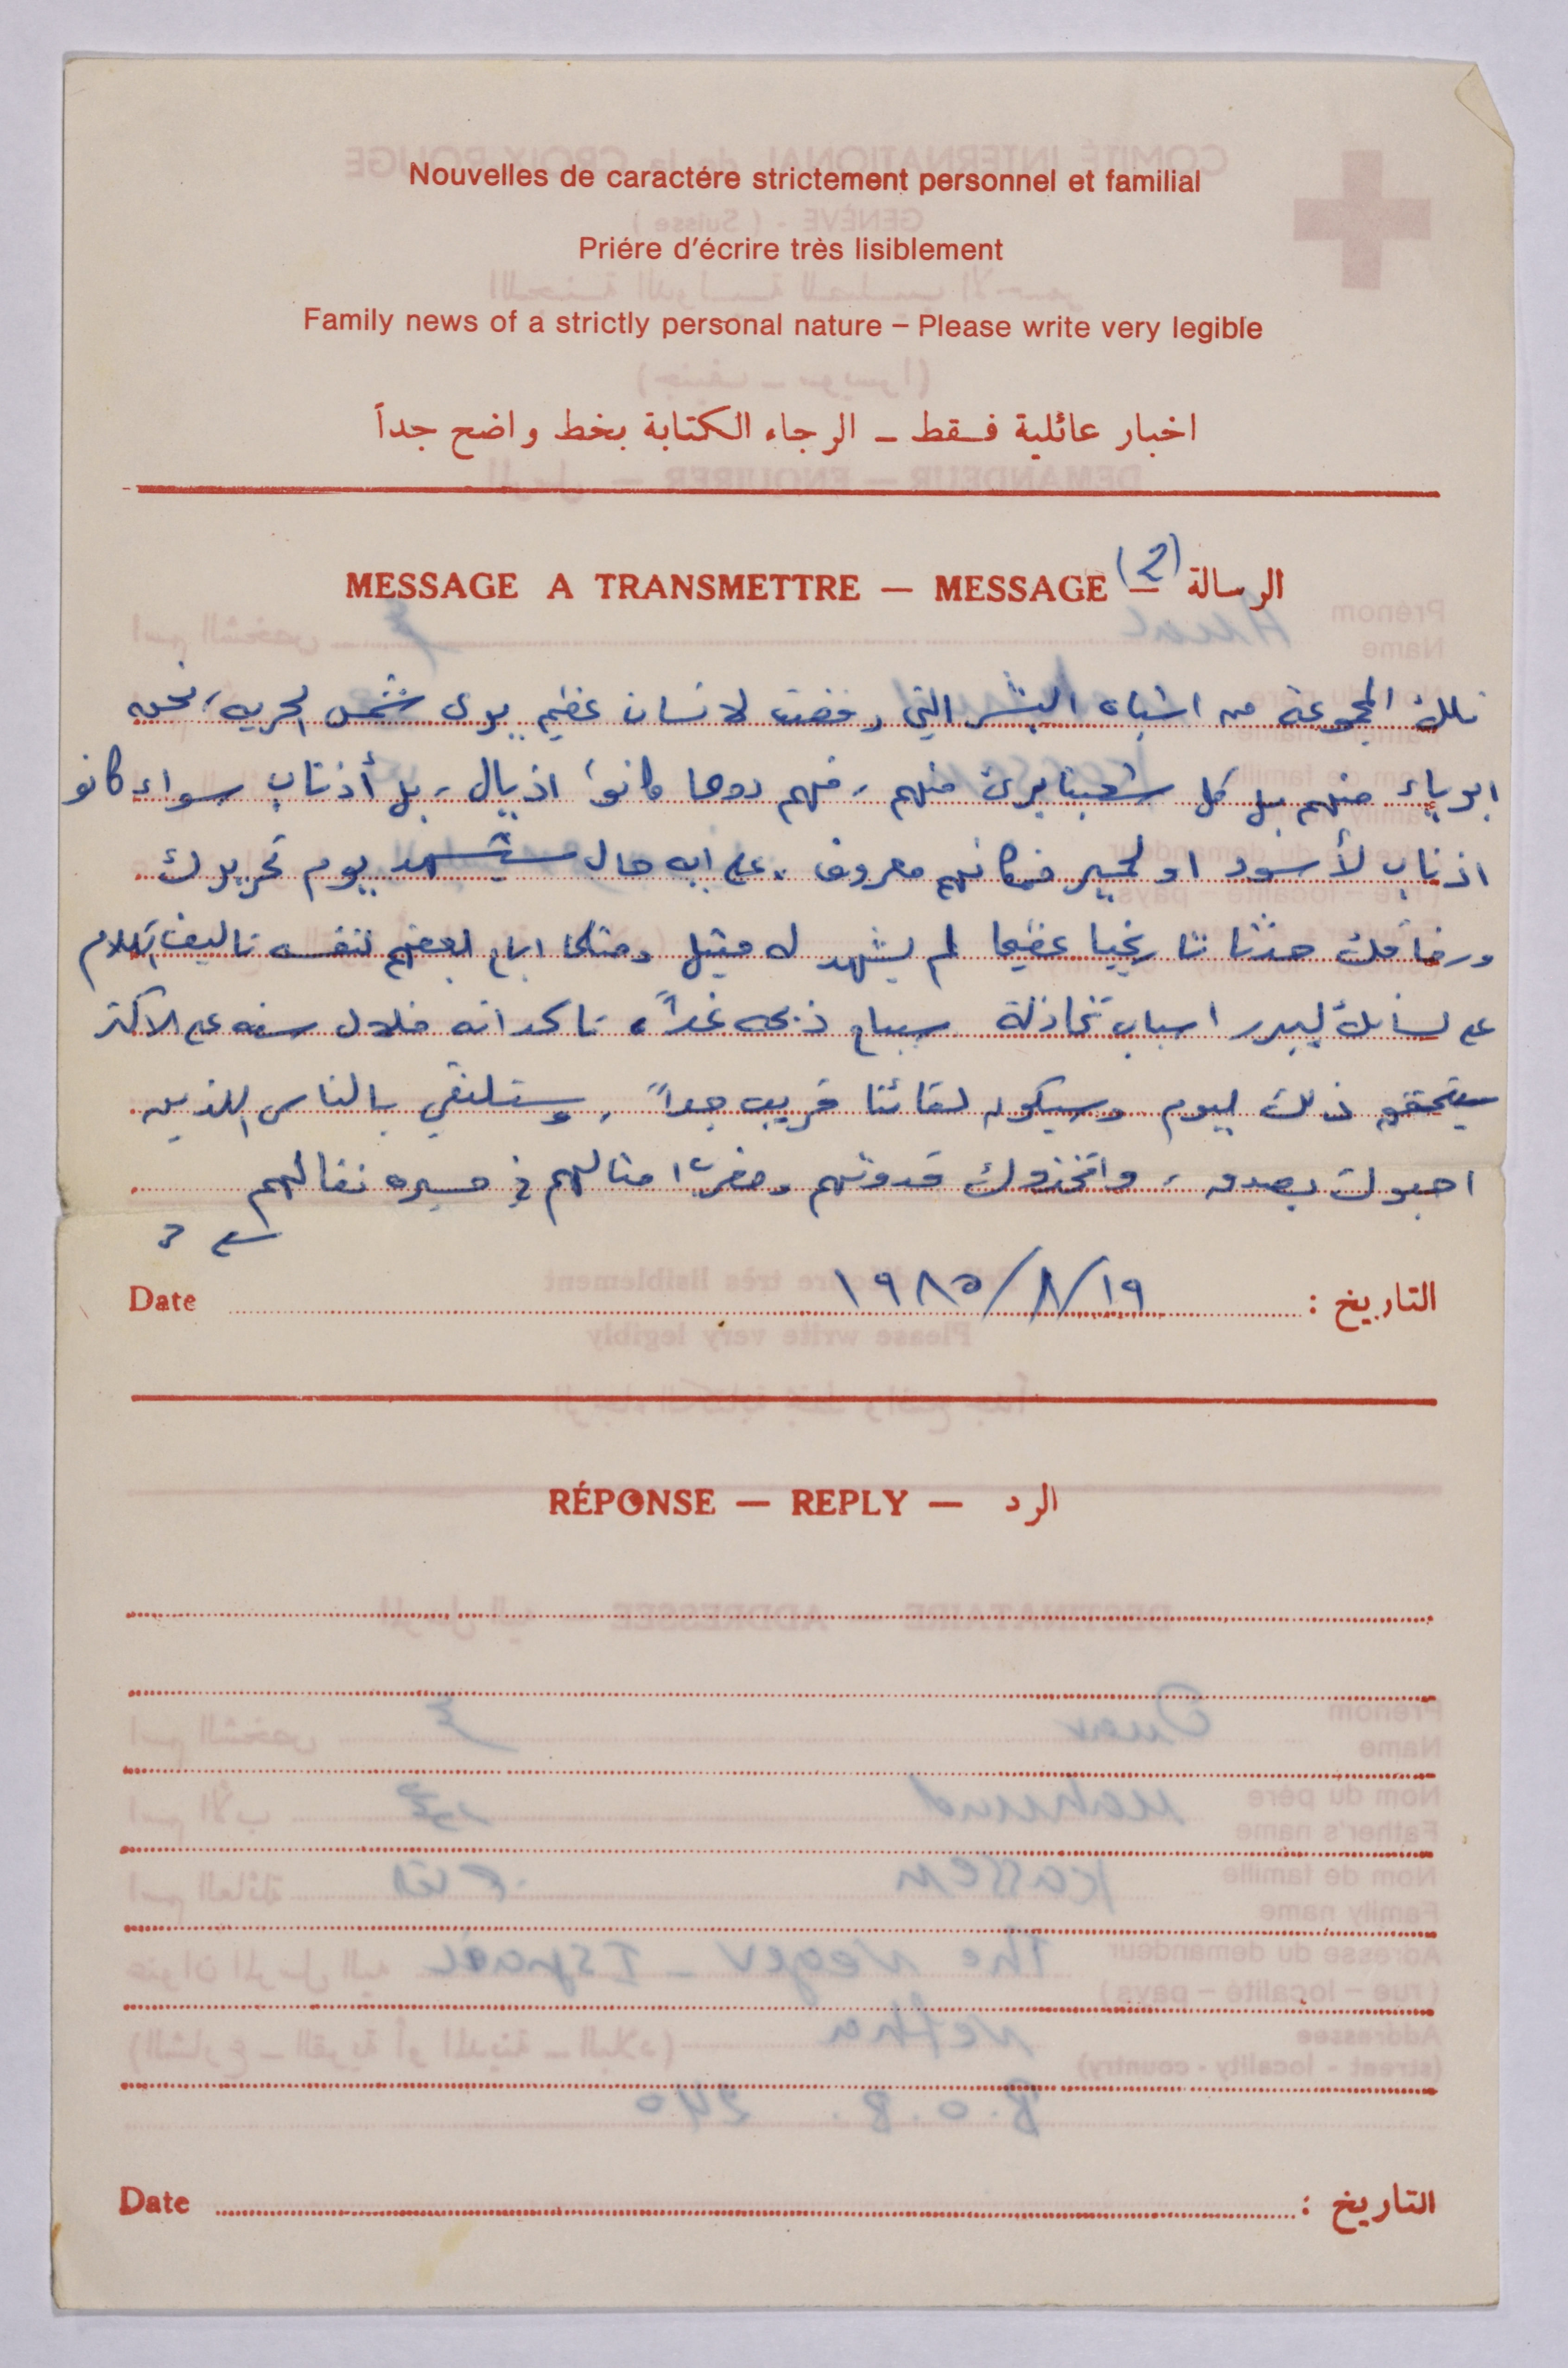 Nouvelles de caractére strictement personnel et familial
Priére d'écrire très lisiblement
Family news of a strictly personal nature – Please write very legible
اخبار عائلية فقط ــ الرجاء الكتابة بخط واضح جداً
MESSAGE A TRANSMETTRE — MESSAGE — الرسالة (2)
تلك المجموعة من اشباه البشر التي رفضت لانسان عظيم يرى شمس الحريه، نحن
ابرياء منهم بل كل شعبنا برئ منهم، فهم دوما كانوا اذيال، بل أذناب سواء كانو
اذناب لأسود او لحمير فمكانهم معروف. على ايه حال سيشهد يوم تحريرك
ورفاقك حدثا تاريخيا عظيما لم يشهد له مثيل ومثلما اباح بعضهم لنفسه تاليف الكلام
على لسانك ليبرر اسباب تخاذلة سيباح ذبحه غداً، تاكد انه خلال سنه على الاكثر
سيتحقق ذلك ليوم وسيكون لقائنا قريب جداً، وستلتقي بالناس اللذين
احبوك بصدق، واتخذوك قدوتهم ومضرب امثالهم في مسيره نضالهم
يتبع 3
Date ١٩/٨/١٩٨٥ التاريخ :
RÉPONSE — REPLY — الرد
Date التاريخ :